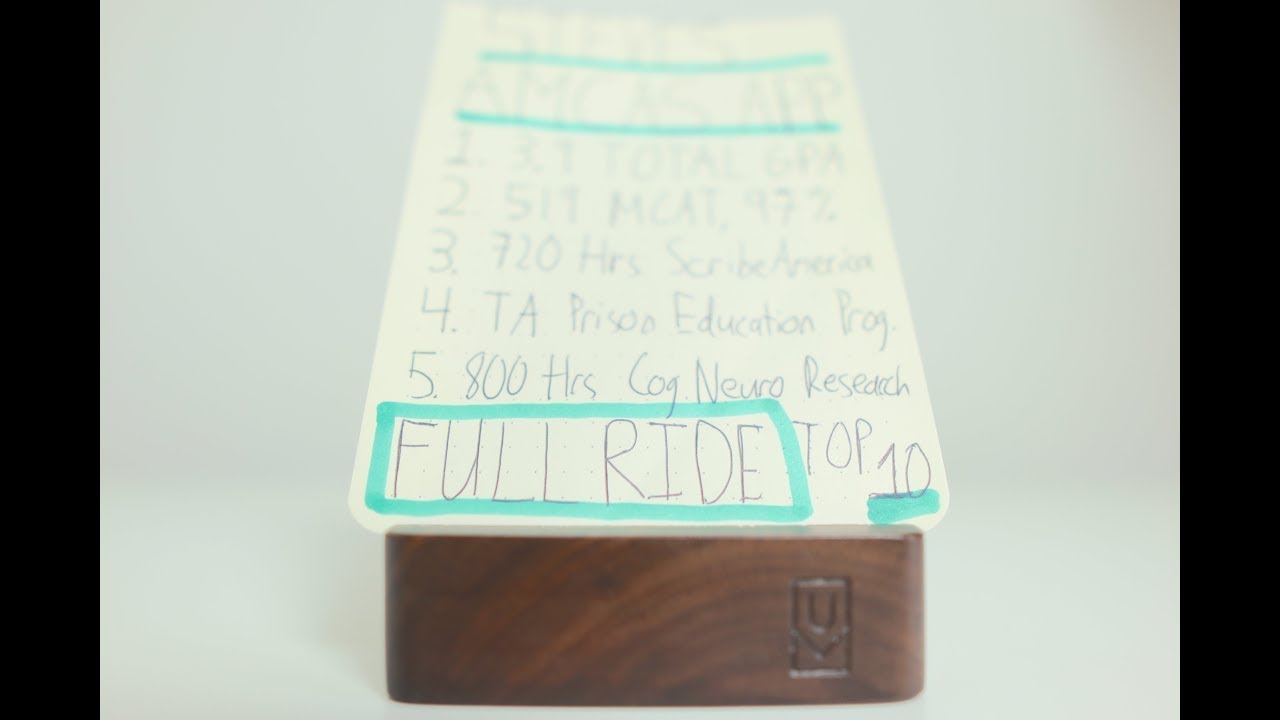 AMCAS APP
1. 3.9 TOTAL GPA
2. 519 MCAT, 97%
3. 720 Hrs ScribeAmerica
4. TA Prison Education Prog.
5. 800 Hrs Cog. Neuro Research
FULL RIDE TOP 10